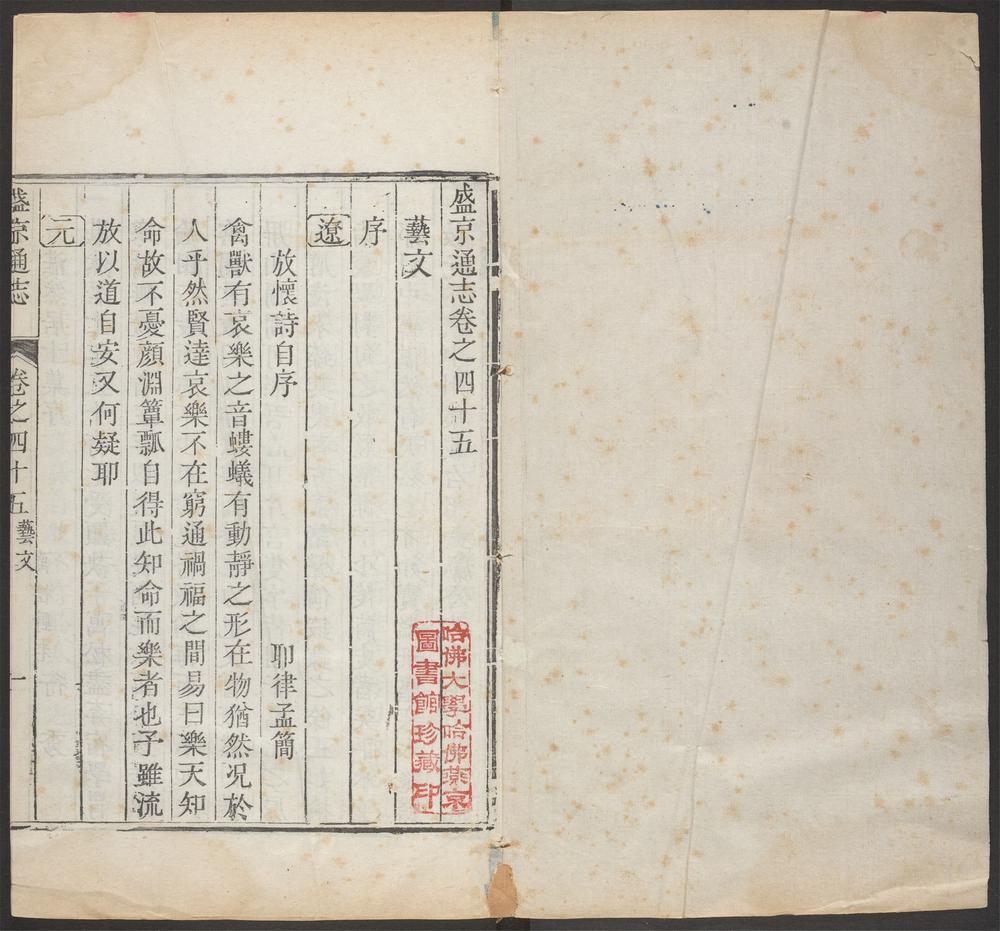 盛京通志卷之四十五
藝文
序
遼
放懷詩自序 耶律孟簡
禽獸有哀樂之音螻蟻有動靜之形在物猶然况於
人乎然賢達哀樂不在窮通禍福之間易曰樂天知
命故不憂顔淵簞瓢自得此知命而樂者也予雖流
放以道自安又何疑耶
元
盛京通志 卷之四十五 藝文 一
哈佛大學哈佛燕京
圖書館珍藏印